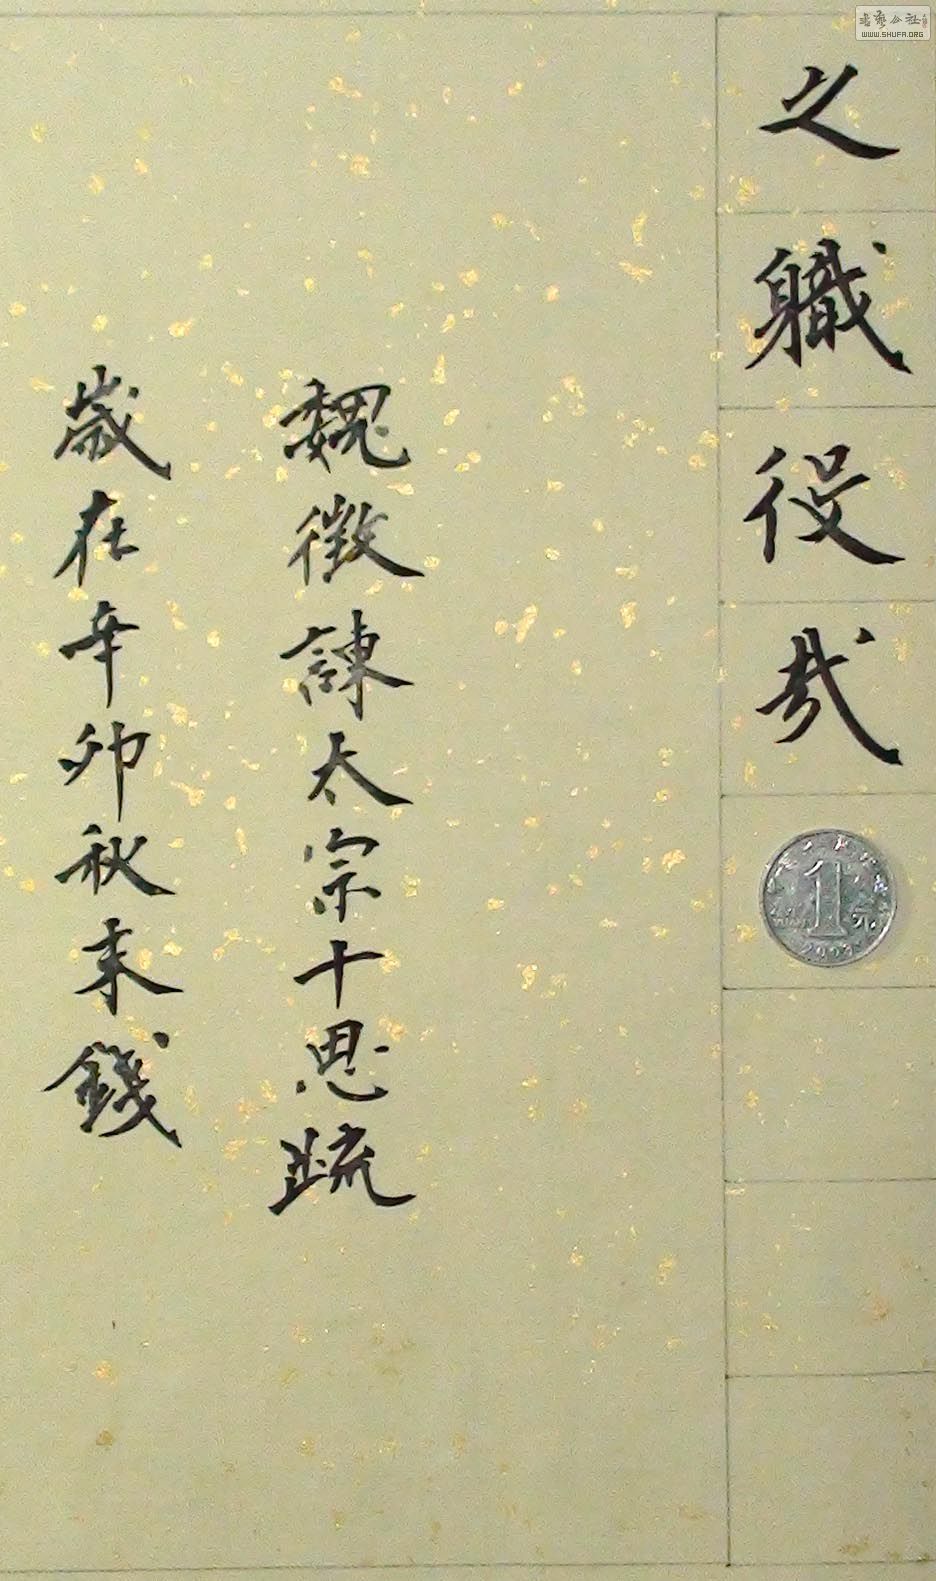 之職役哉
魏徵諫太宗十思疏
歲在辛卯秋末錢
1
元
2009
书艺公社
WWW.SHUFA.ORG